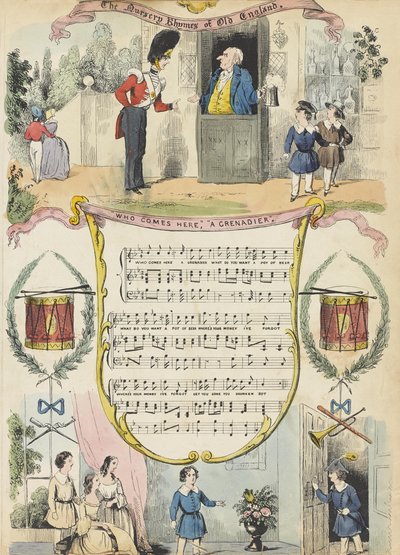 The Nursery Rhymes of Old England.
"WHO COMES HERE," "A GRENADIER".
WHO COMES HERE A GRENADIER WHAT DO YOU WANT A POT OF BEER
WHAT DO YOU WANT A POT OF BEER WHERES YOUR MONEY I'VE FORGOT
WHERES YOUR MONEY I'VE FORGOT GET YOU GONE YOU DRUNKEN SOT